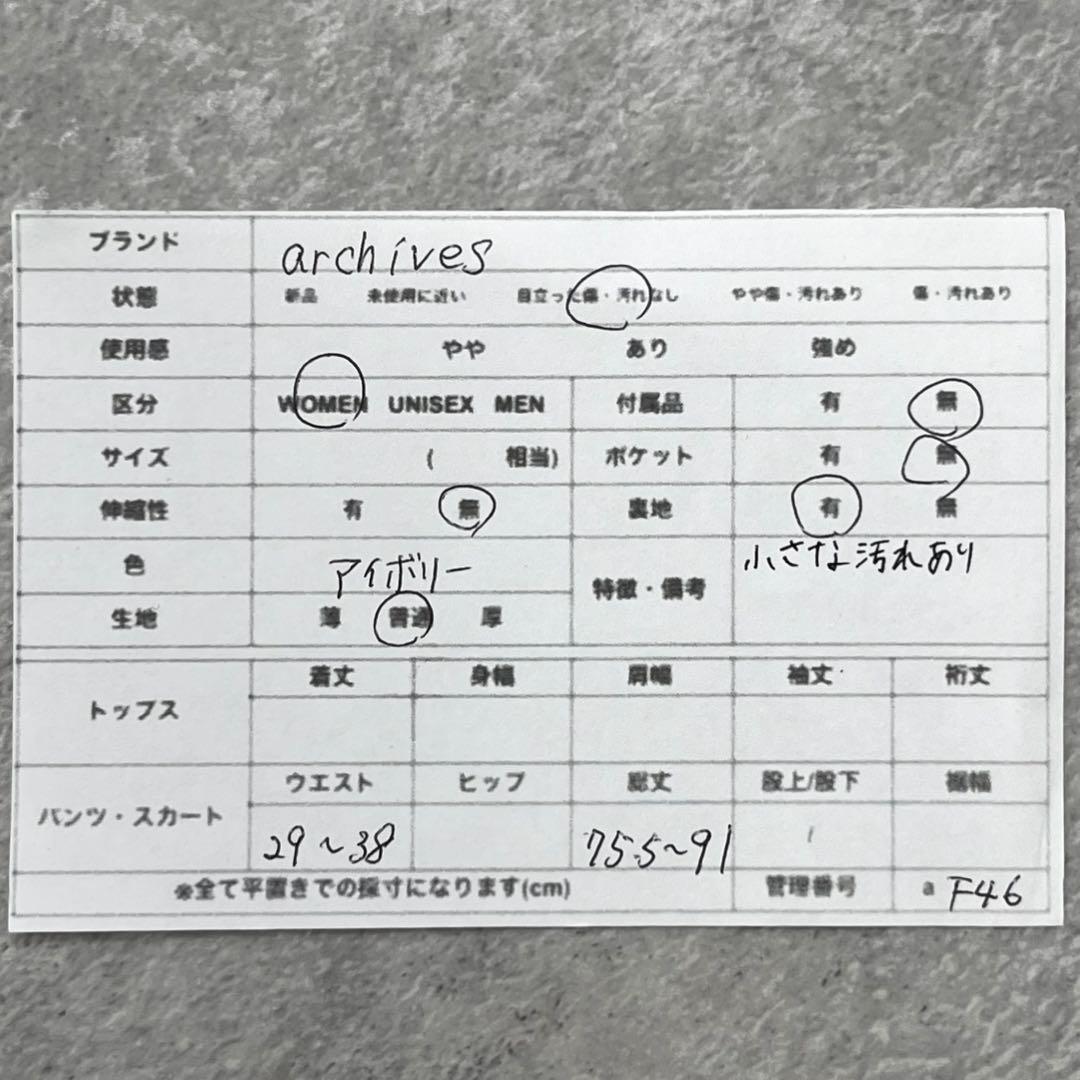 ブランド archives
状態 新品 未使用に近い 目立った傷・汚れなし やや傷・汚れあり 傷・汚れあり
使用感 やや あり 強め
区分 WOMEN UNISEX MEN 付属品 有 無
サイズ ( 相当) ポケット 有 無
伸縮性 有 無 裏地 有 無
色 アイボリー 特徴・備考 小さな汚れあり
生地 薄 普通 厚
トップス 着丈 身幅 肩幅 袖丈 裄丈
パンツ・スカート ウエスト ヒップ 総丈 股上/股下 裾幅
29~38 75.5~91 /
※全て平置きでの採寸になります(cm) 管理番号 a F46